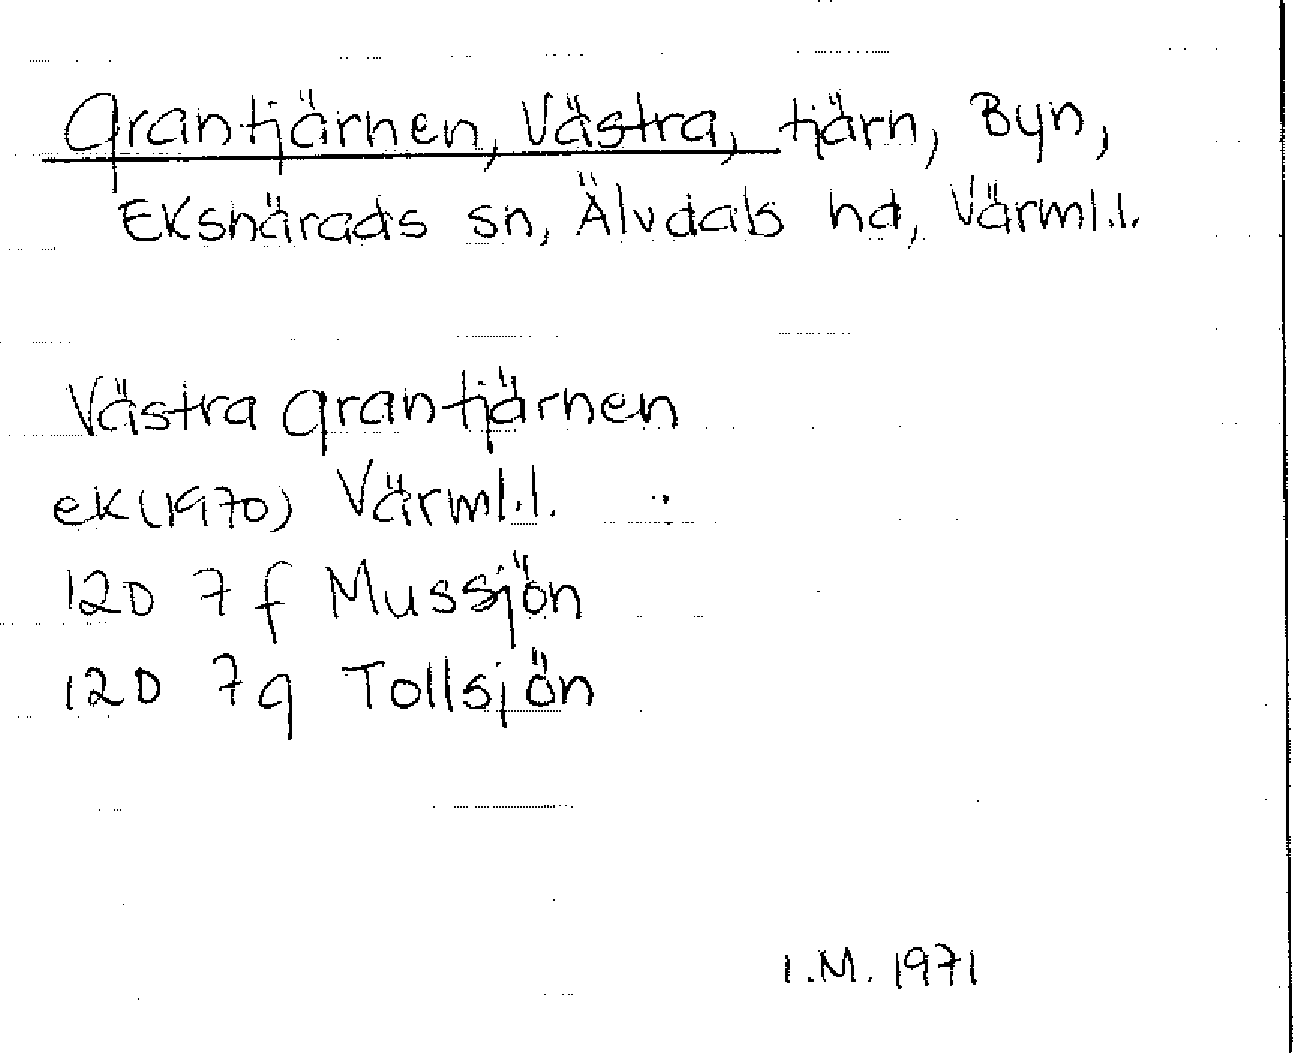 Grantjärnen, Västra, tjärn, Byn,
Ekshärads sn, Älvdals hd, Värml.l.
Västra Grantjärnen
ek(1970) Värml.l.
12D 7f Mussjön
12D 7g Tollsjön
I.M. 1971